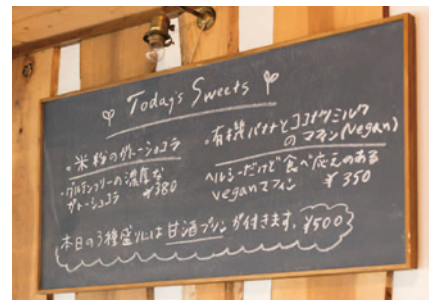 Today's Sweets
・米粉のガトーショコラ
・グルテンフリーの濃厚な
ガトーショコラ ¥380
・有機バナナとココナツミルク
のマフィン(Vegan)
ヘルシーだけど食べ応えのある
veganマフィン ¥350
本日の3種盛りには甘酒プリンが付きます。¥500